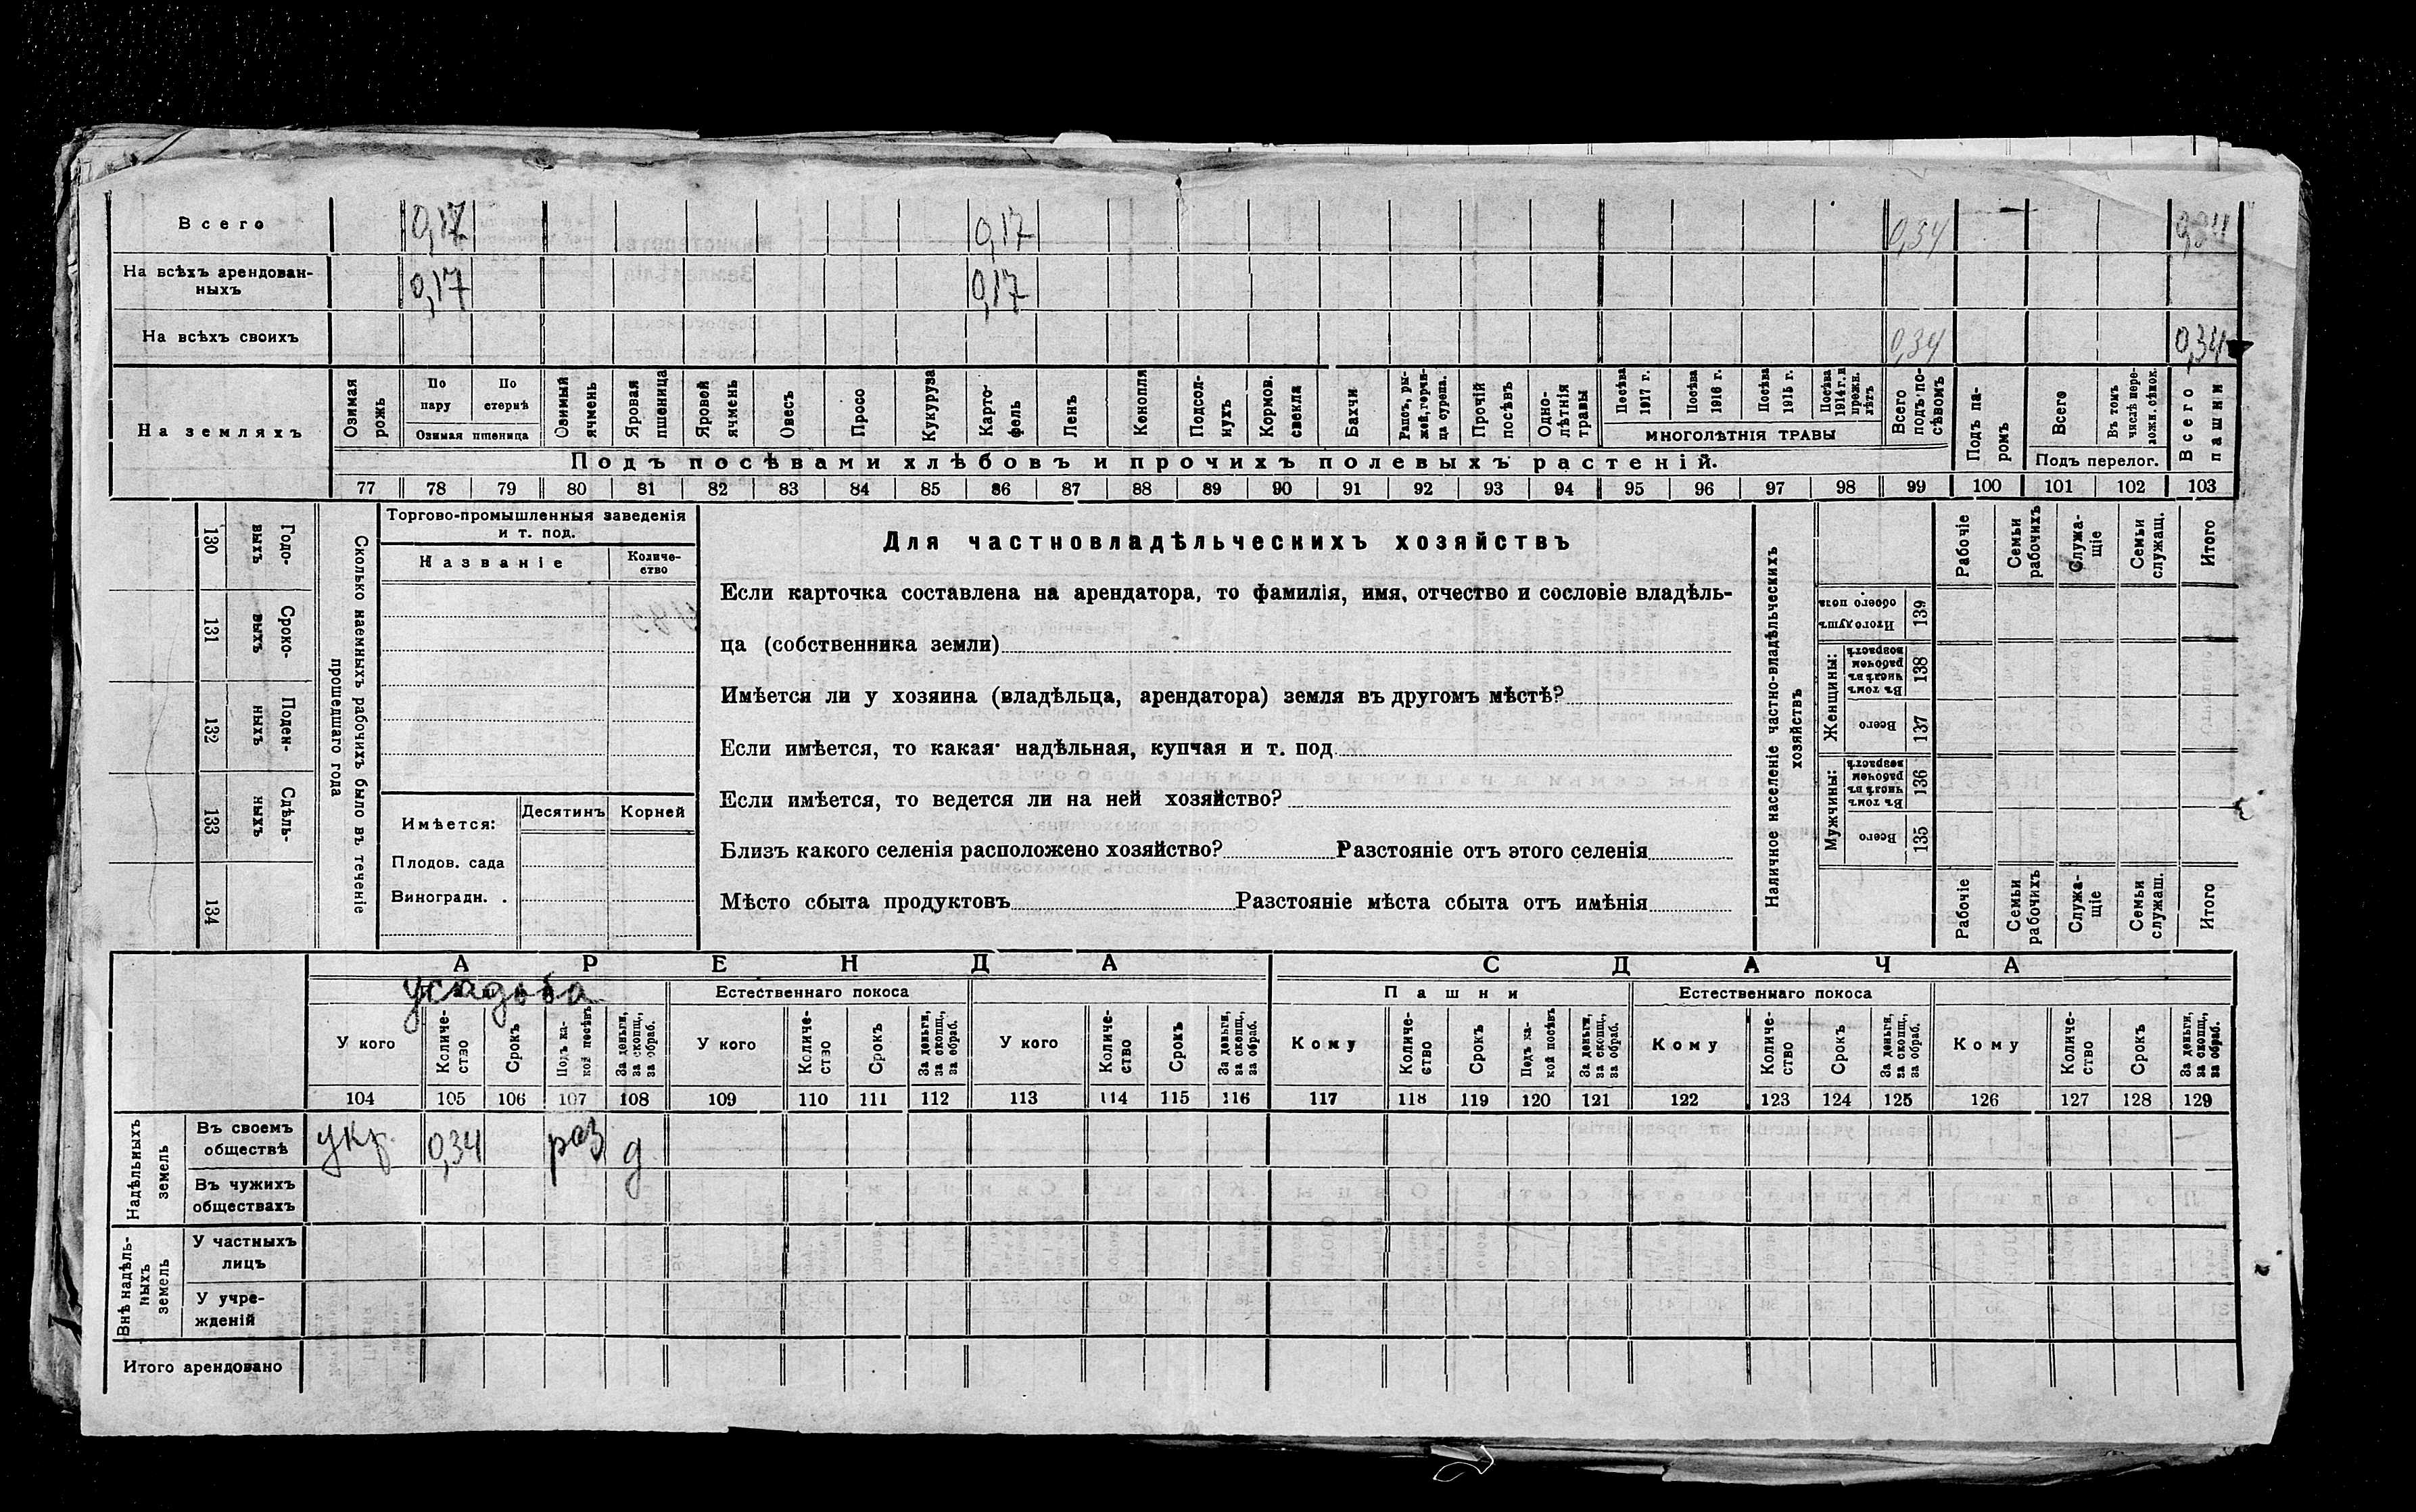 Всего 0,17 0,17 0,34 0,34
На всѣхъ арендован-
ныхъ 0,17 0,17
На всѣхъ своихъ 0,34 0,34
На земляхъ
Озимая рожь
По пару
По стернѣ
Озимая пшеница
Озимый ячмень
Яровая пшеница
Яровой ячмень
Овесъ
Просо
Кукуруза
Карто-
фель
Ленъ
Конопля
Подсол-
нухъ
Кормов. свекла
Бахчи
Рапсъ, ры-
жей, горчи-
ца сурепа.
Прочій посѣвъ
Одно-
лѣтнія травы
Посѣва 1917 г.
Посѣва 1916 г.
Посѣва 1915 г.
Посѣва 1914 г. и прежн. лѣтъ
МНОГОЛѢТНІЯ ТРАВЫ
Всего подъ по-
сѣвомъ
Подъ па-
ромъ
Всего
Въ томъ числѣ пере-
ложн. сѣнок.
Подъ перелог.
Всего пашни
Подъ посѣвами хлѣбовъ и прочихъ полевыхъ растеній.
77 78 79 80 81 82 83 84 85 86 87 88 89 90 91 92 93 94 95 96 97 98 99 100 101 102 103
130 Годо-
выхъ
131 Сроко-
выхъ
132 Поден-
ныхъ
133 Сдѣль-
ныхъ
134
Сколько наемныхъ рабочихъ было въ теченіе
прошедшаго года
Торгово-промышленныя заведенія
и т. под.
Названіе
Количе-
ство
Имѣется: Десятинъ Корней
Плодов. сада
Виноградн.
Для частновладѣльческихъ хозяйствъ
Если карточка составлена на арендатора, то фамилія, имя, отчество и сословіе владѣль-
ца (собственника земли)
Имѣется ли у хозяина (владѣльца, арендатора) земля въ другомъ мѣстѣ?
Если имѣется, то какая· надѣльная, купчая и т. под
Если имѣется, то ведется ли на ней хозяйство?
Близъ какого селенія расположено хозяйство? Разстояніе отъ этого селенія
Мѣсто сбыта продуктовъ Разстояніе мѣста сбыта отъ имѣнія
Наличное населеніе частно-владѣльческихъ
хозяйствъ
Рабочіе
Семьи рабочихъ
Служа-
щіе
Семьи служащ.
Итого
Итого душъ обоего пола 139
Женщины:
Въ томъ числѣ въ рабочемъ возрастѣ 138
Всего 137
Мужчины:
Въ томъ числѣ въ рабочемъ возрастѣ 136
Всего 135
Рабочіе
Семьи рабочихъ
Служа-
щіе
Семьи служащ.
Итого
АРЕНДА СДАЧА
усадьба Естественнаго покоса Пашни Естественнаго покоса
У кого
Количе-
ство
Срокъ
Подъ ка-
кой посѣвъ
За деньги, за скопщ., за обраб.
У кого
Количе-
ство
Срокъ
За деньги, за скопщ., за обраб.
У кого
Количе-
ство
Срокъ
За деньги, за скопщ., за обраб.
Кому
Количе-
ство
Срокъ
Подъ ка-
кой посѣвъ
За деньги, за скопщ., за обраб.
Кому
Количе-
ство
Срокъ
За деньги, за скопщ., за обраб.
Кому
Количе-
ство
Срокъ
За деньги, за скопщ., за обраб.
104 105 106 107 108 109 110 111 112 113 114 115 116 117 118 119 120 121 122 123 124 125 126 127 128 129
Надѣльныхъ земель
Въ своемъ
обществѣ 0,34 раз д
Въ чужихъ
обществахъ
Внѣ надѣль-
ныхъ земель
У частныхъ
лицъ
У учре-
жденій
Итого арендовано